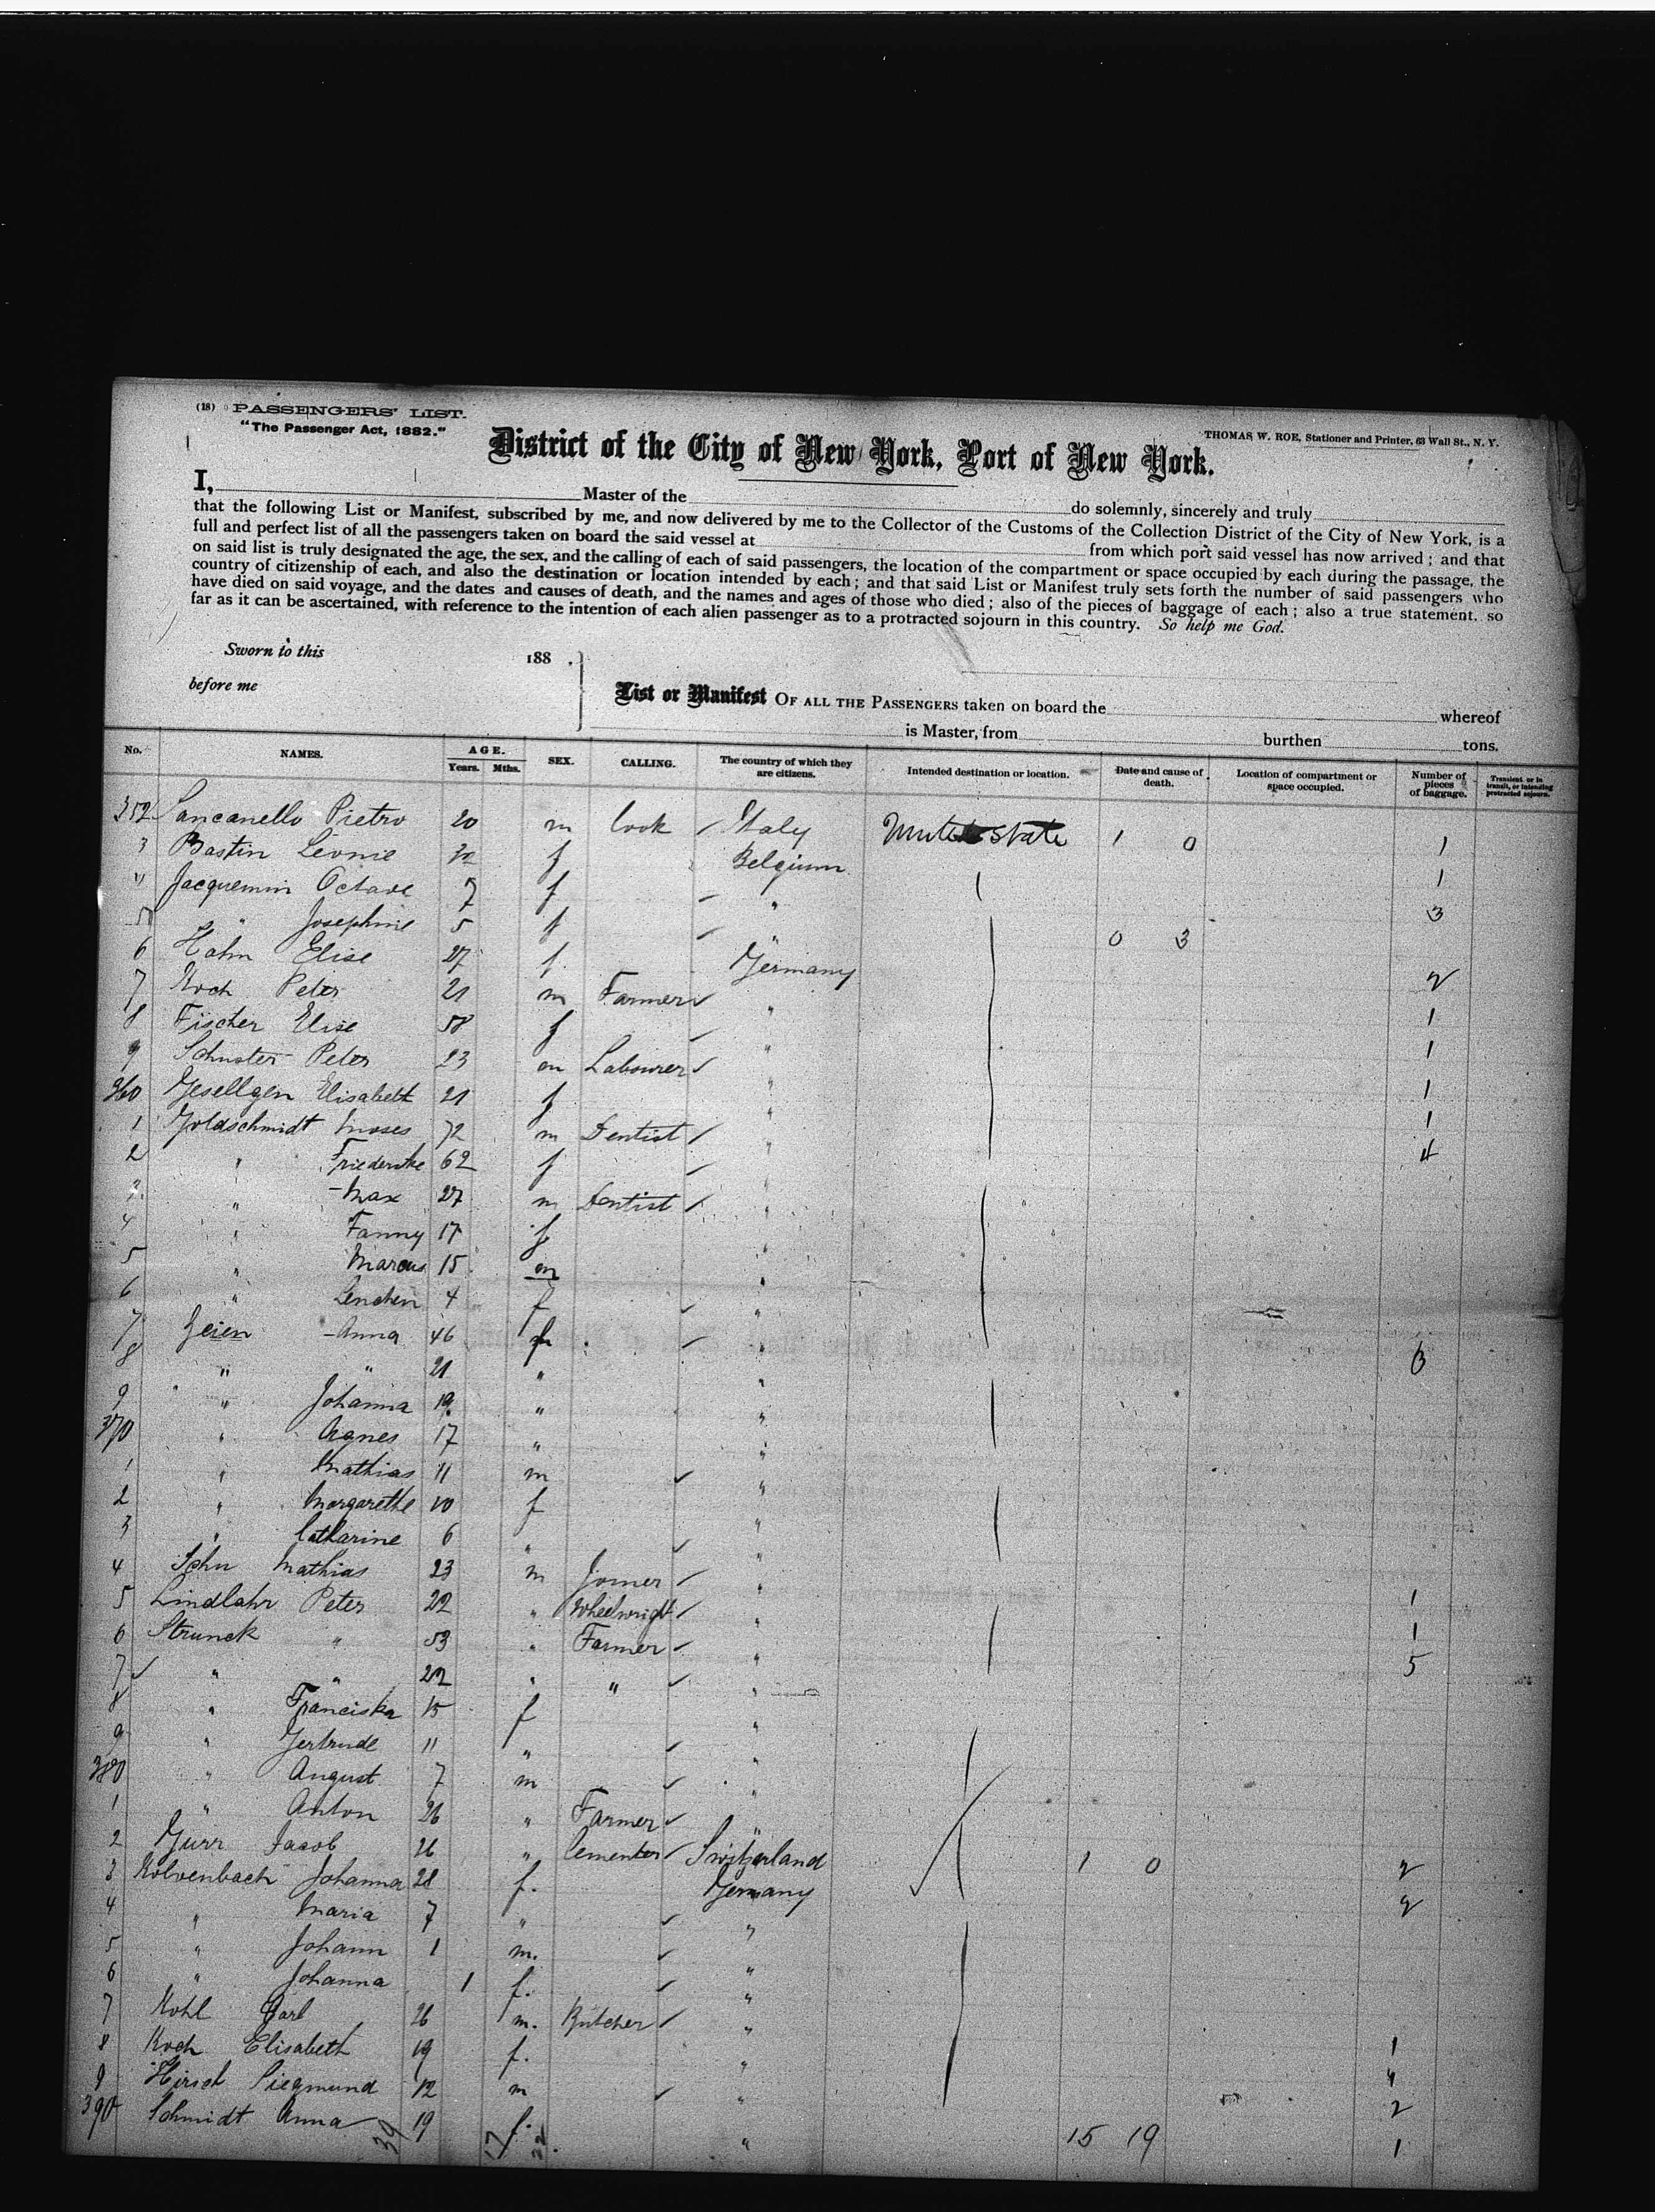 (18) PASSENGERS' LIST.
"The Passenger Act, 1882."
THOMAS W. ROE, Stationer and Printer, 63 Wall St., N. Y.
District of the City of New York, Port of New York.
I, Master of the do solemnly, sincerely and truly
that the following List or Manifest, subscribed by me, and now delivered by me to the Collector of the Customs of the Collection District of the City of New York, is a
full and perfect list of all the passengers taken on board the said vessel at from which port said vessel has now arrived; and that
on said list is truly designated the age, the sex, and the calling of each of said passengers, the location of the compartment or space occupied by each during the passage, the
country of citizenship of each, and also the destination or location intended by each; and that said List or Manifest truly sets forth the number of said passengers who
have died on said voyage, and the dates and causes of death, and the names and ages of those who died; also of the pieces of baggage of each; also a true statement, so
far as it can be ascertained, with reference to the intention of each alien passenger as to a protracted sojourn in this country. So help me God.
Sworn to this 188 .
before me
List or Manifest OF ALL THE PASSENGERS taken on board the whereof
is Master, from burthen tons.
No. NAMES. AGE. Years. Mths. SEX. CALLING. The country of which they are citizens. Intended destination or location. Date and cause of death. Location of compartment or space occupied. Number of pieces of baggage. Transient or in transit, or intending protracted sojourn.
352 Sancanello Pietro 20 m Cook Italy United State 1 0 1
3 Bastin Leonie 30 f Belgium 1
4 Jacquemin Octave 7 f " 3
5 " Josephine 5 f " 0 3
6 Hahn Elise 27 f. Germany 2
7 Koch Peter 21 m Farmer " 1
8 Fischer Elise 58 f " 1
9 Schuster Peter 23 m Labourer " 1
360 Gesellgen Elisabeth 21 f " 1
1 Goldschmidt Moses 72 m Dentist " 4
2 " Friederike 62 f "
3 " Max 27 m Dentist "
4 " Fanny 17 f "
5 " Marcus 15 m "
6 " Lenchen 4 f "
7 Zeien Anna 46 f " 3
8 " " 21 " "
9 " Johanna 19 " "
370 " Agnes 17 " "
1 " Mathias 11 m "
2 " Margarethe 10 f "
3 " Catharine 6 " "
4 Schu Mathias 23 m Joiner " 1
5 Lindlahr Peter 22 " Wheelwright " 1
6 Strunck " 53 " Farmer " 5
7 " " 22 " " "
8 " Franciska 15 f "
9 " Gertrude 11 " "
380 " August 7 m "
1 " Anton 26 " Farmer "
2 Gurr Jacob 26 " Cementer Switzerland 1 0 2
3 Kolvenbach Johanna 28 f. Germany 2
4 " Maria 7 " "
5 " Johann 1 m. "
6 " Johanna 1 f. "
7 Kohl Carl 26 m. Butcher " 1
8 Koch Elisabeth 19 f. " 4
9 Hirsch Siegmund 12 m " 2
390 Schmidt Anna 19 f. " 1
39 17 22 15 19